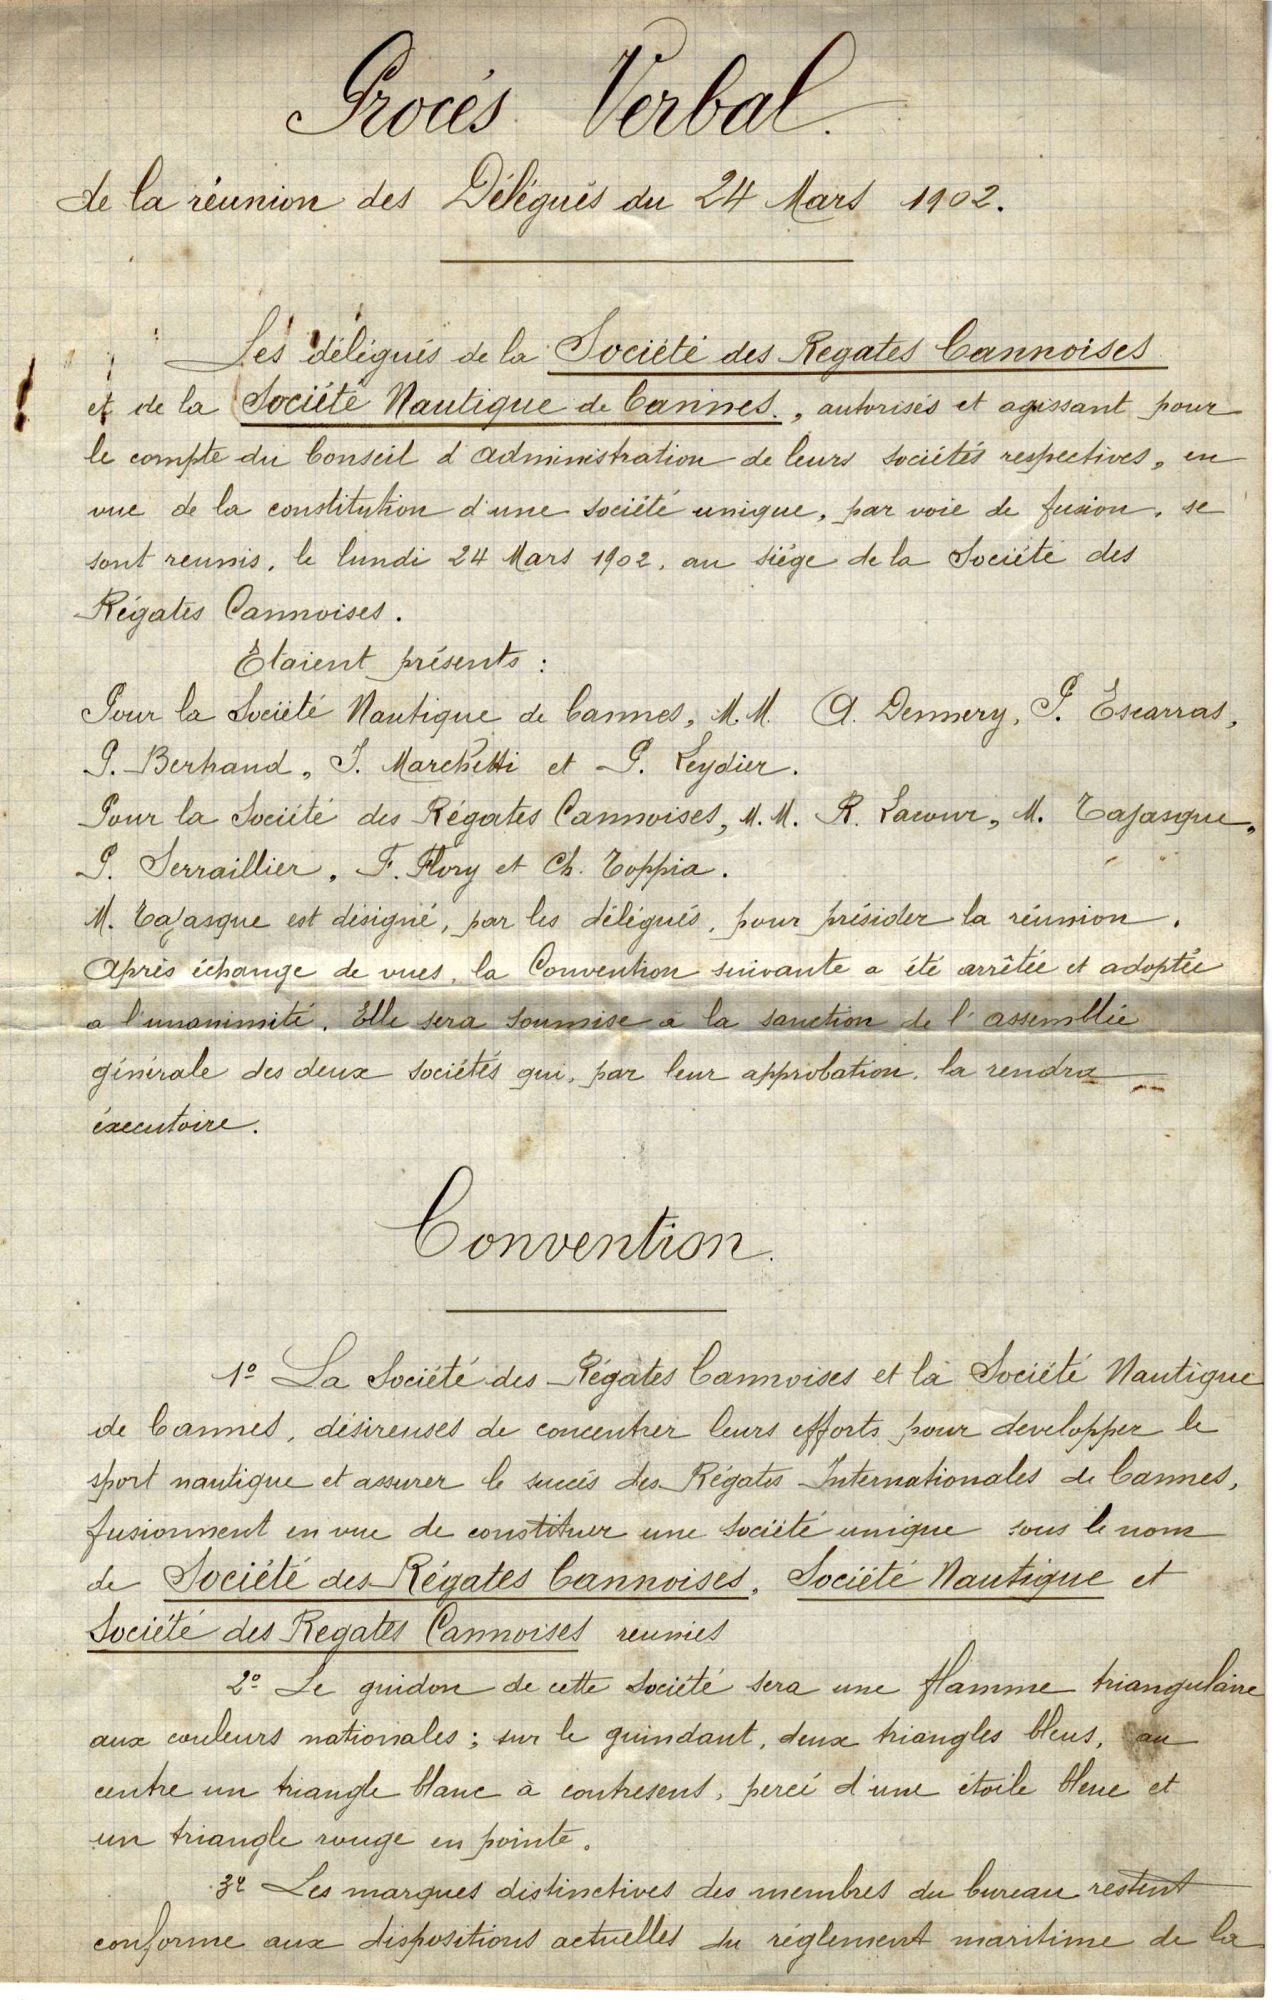 Procès Verbal.
de la réunion des Délégués du 24 Mars 1902.
Les délégués de la Société des Regates Cannoises
et de la Société Nautique de Cannes, autorisés et agissant pour
le compte du Conseil d'administration de leurs sociétés respectives, en
vue de la constitution d'une société unique, par voie de fusion, se
sont reunis, le lundi 24 Mars 1902, au siège de la Société des
Régates Cannoises.
Etaient présents :
Pour la Société Nautique de Cannes, M.M. A. Dennery, P. Escarras,
P. Bertrand, J. Marchetti et P. Leydier.
Pour la Société des Régates Cannoises, M.M. R. Lacour, M. Tajasque,
P. Serraillier, F. Flory et Ch. Toppia.
M. Tajasque est désigné, par les délégués, pour présider la réunion.
Après échange de vues, la Convention suivante a été arrêtée et adoptée
a l'unanimité. Elle sera soumise a la sanction de l'assemblée
générale des deux sociétés qui, par leur approbation, la rendra
éxecutoire.
Convention.
1º La Société des Régates Cannoises et la Société Nautique
de Cannes, désireuses de concentrer leurs efforts pour developper le
sport nautique et assurer le succès des Régates Internationales de Cannes,
fusionnent en vue de constituer une société unique sous le nom
de Société des Régates Cannoises, Société Nautique et
Société des Regates Cannoises reunies
2º Le guidon de cette société sera une flamme triangulaire
aux couleurs nationales ; sur le guindant, deux triangles bleus, au
centre un triangle blanc à contresens, percé d'une étoile bleue et
un triangle rouge en pointe.
3º Les marques distinctives des membres du bureau restent
conforme aux dispositions actuelles du réglement maritime de la